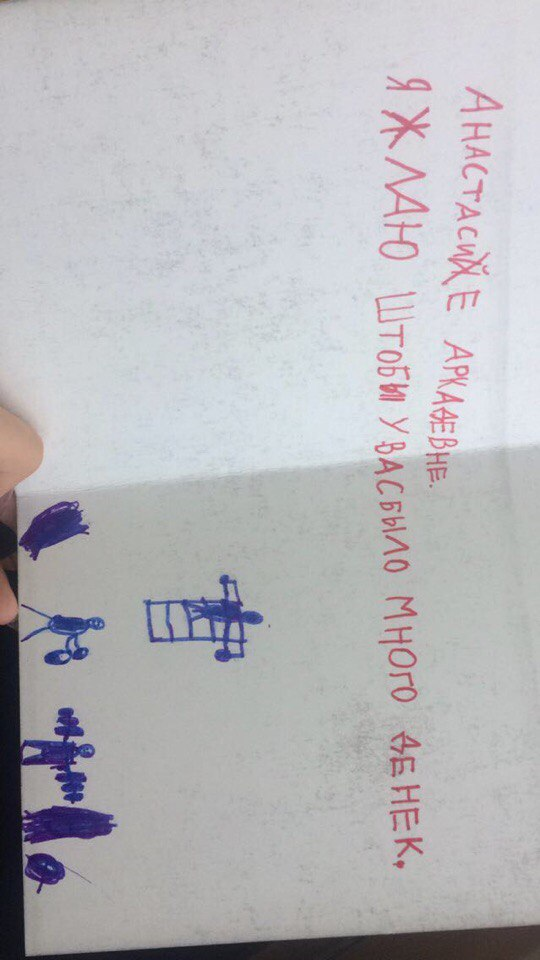 АНАСТАСИЕ АРКАДЕВНЕ.
Я ЖЛАЮ ШТОБЫ У ВАС БЫЛО МНОГО ДЕНЕК.